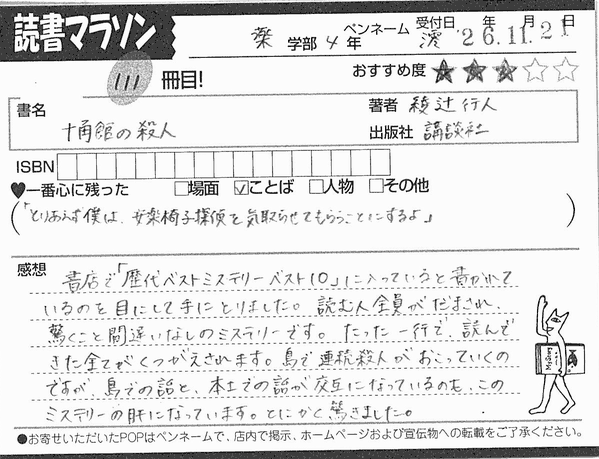 読書マラソン
薬 学部 4 年 ペンネーム 澪 受付日 '26年 11月 21日
111 冊目!
おすすめ度 ★★★☆☆
書名 十角館の殺人
著者 綾辻行人
出版社 講談社
ISBN
♥一番心に残った □場面 ☑ことば □人物 □その他
(「とりあえず僕は、安楽椅子探偵を気取らせてもらうことにするよ」)
感想
書店で「歴代ベストミステリーベスト10」に入っていると書かれて
いるのを目にして手にとりました。読む人全員がだまされ、
驚くこと間違いなしのミステリーです。たった一行で、読んで
きた全てがくつがえされます。島で連続殺人がおこっていくの
ですが、島での話と、本土での話が交互になっているのも、この
ミステリーの肝になっています。とにかく驚きました。
●お寄せいただいたPOPはペンネームで、店内で掲示、ホームページおよび宣伝物への転載をご了承ください。